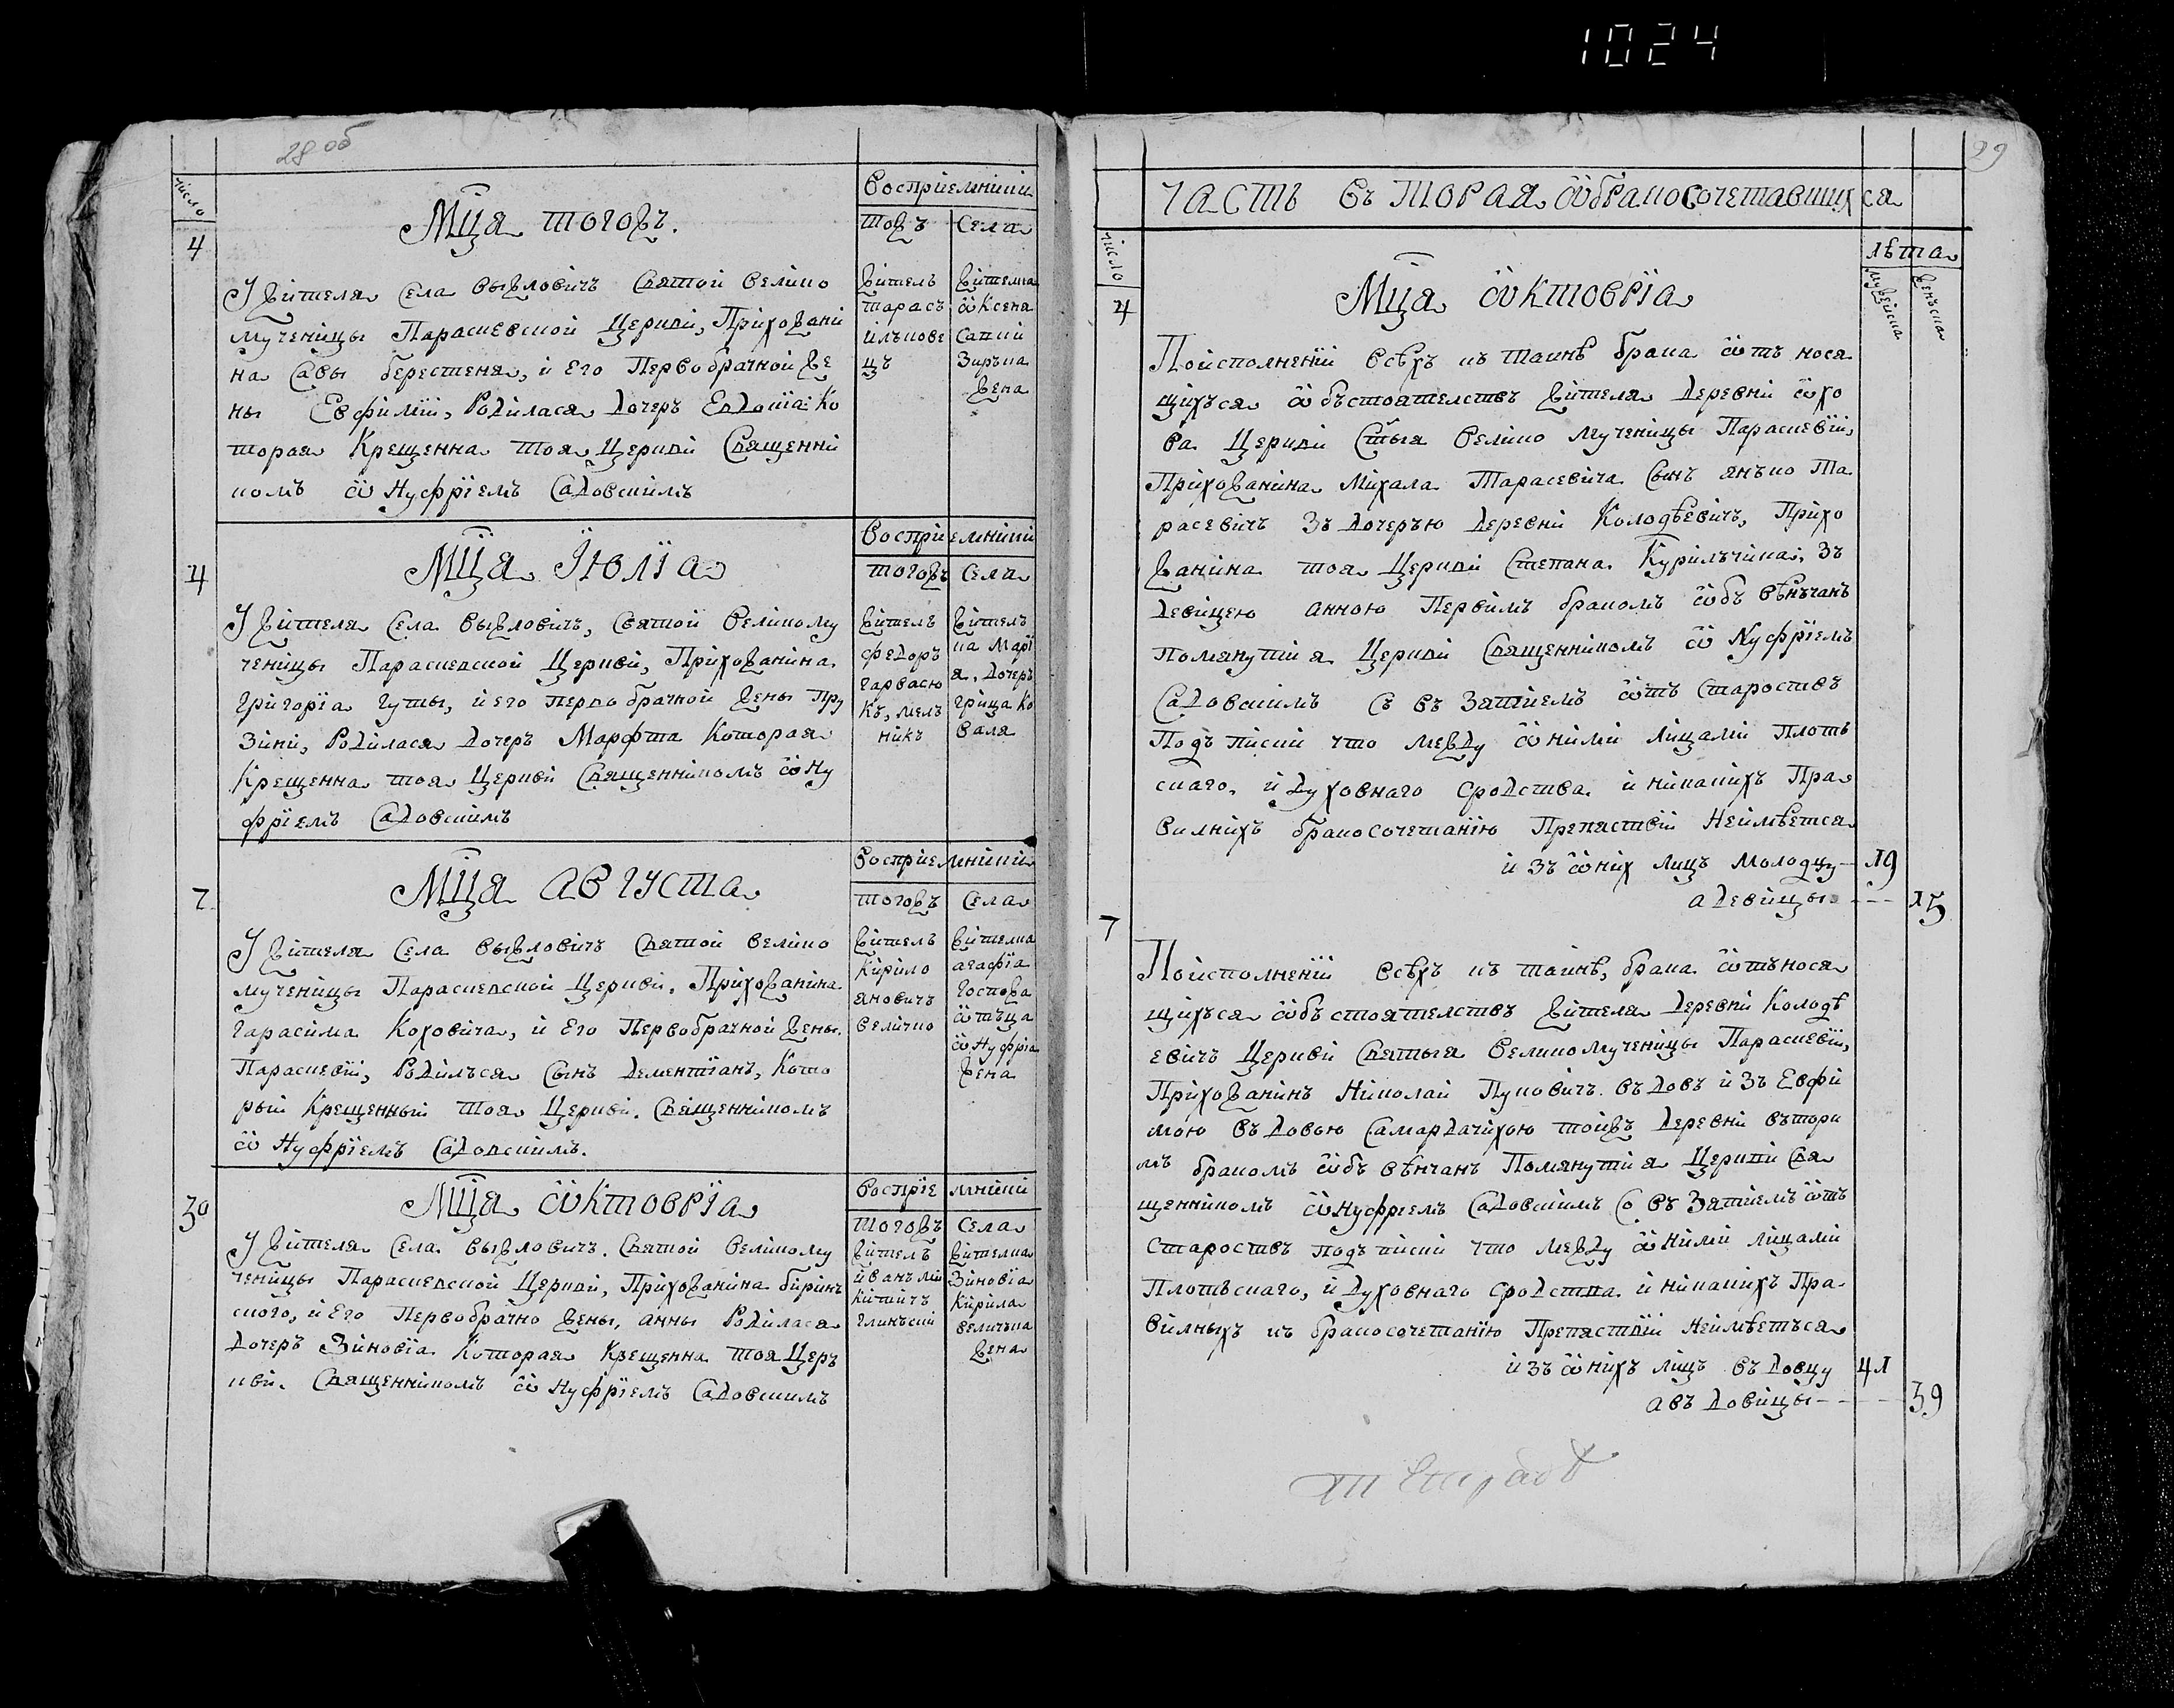 1024
28 об
число
Мца тогожъ.
Восприемники
тожъ Села
4
У жителя Села Выжловичъ Святой Велико
мученицы Параскевской Церкви, Прихожани
на Савы берестеня, и Его Первобрачной же
ны Евфимїи, Родилася Дочеръ Евдокїа Ко
торая Крещенна тоя Церкви Священни
комъ ѿ Нуфрїемъ Садовскимъ
житель
тарасъ
илъкове
цъ
жителка
ѿксеня
Сапки
Зиръка
жена
Мца Їюлїа
Восприемники
тогожъ Села
4
У жителя Села Выжловичъ, Святой Великому
ченицы Параскевской Церкви, Прихожанина
Григорїа Гуты, и его первобрачной жены Пру
зини, Родилася Дочеръ Марфта Которая
Крещенна тоя Церкви Священникомъ ѿ Ну
фрїемъ Садовскимъ
житель
федоръ
гарвасю
къ, мел
никъ
жителъ
ка Марї
я, дочеръ
грица Ко
валя
Мца августа
Восприемники
тогожъ Села
7
У жителя Села Выжловичъ Святой Велико
мученицы Параскевской Церкви, Прихожанина
Гарасима Коховича, и Его Первобрачной жены
Параскевїи, Родилъся Сынъ Дементїанъ, Кото
рый Крещенный тоя Церкви. Священникомъ
ѿ Нуфрїемъ Садовскимъ.
житель
Кирило
яновичъ
величко
жителка
агафїа
Госпожа
ѿтъца
ѿнуфрїа
жена
Мца ѿктоврїа
Восприемники
тогожъ Села
30
У жителя Села Выжловичъ. Святой Великому
ченицы Параскевской Церкви, Прихожанина биринъ
ского, и Его Первобрачно жены, анны Родилася
Дочеръ Зиновїа Которая Крещенна тоя Церъ
кви. Священникомъ ѿ Нуфрїемъ Садовскимъ
жителъ
иванъ ми
китичъ
глинъский
жителка
Зиновїа
Кирила
величъка
жена
29
частъ въторая ѿбракосочетавшихся
число
лѣта
мужеска
женъска
Мца ѿктоврїа
4
Поисполненїи всѣхъ къ таинѣ брака ѿтъ нося
щихъся ѿбъстоятелствъ жителя Деревни ѿхо
ва Церкви Стыя Велико мученицы Параскевїи,
Прихожанина Михала Тарасевича Сынъ янъко Та
расевичъ Зъ Дочеръю Деревни Колодѣевичъ, Прихо
жанина тоя Церкви Степана Курилъчика, Зъ
девицею анною Первимъ бракомъ ѿбъ вѣнъчанъ
помянутия Церкви Священникомъ ѿ Нуфрїемъ
Садовскимъ Съ въ Затїемъ ѿтъ Староствъ
Подъ писки что между ѿними лицами Плоть
скаго, и Духовнаго Сродства и никакихъ Пра
вилнихъ бракосочетанїю Препяствїй Неимѣетса
и зъ ѿних лицъ молодцу— л9
а девицы — — л5
7
Поисполненїи всѣхъ къ таинѣ, брака ѿтънося
щихъся ѿбъстоятелствъ жителя Деревни Колодѣ
евичъ Церкви Святыя Великомученицы Параскевїи,
Прихожанинъ Николай Пуковичъ въдовъ и Зъ Евфи
мою въдовою Самардачихою тоижъ Деревни въторы
мъ бракомъ ѿбъ вѣнчанъ Помянутия Церкви Свя
щенникомъ ѿнуфрїемъ Садовскимъ Со въ Затїемъ ѿтъ
Староствъ подъ писки что между ѿними лицами
Плотъскаго, и Духовнаго Сродства и никакихъ Пра
вилныхъ къ бракосочетанїю Препяствїй Неимѣетъся
и зъ ѿнихъ лицъ въдовцу 4л
авъдовицы — — 39